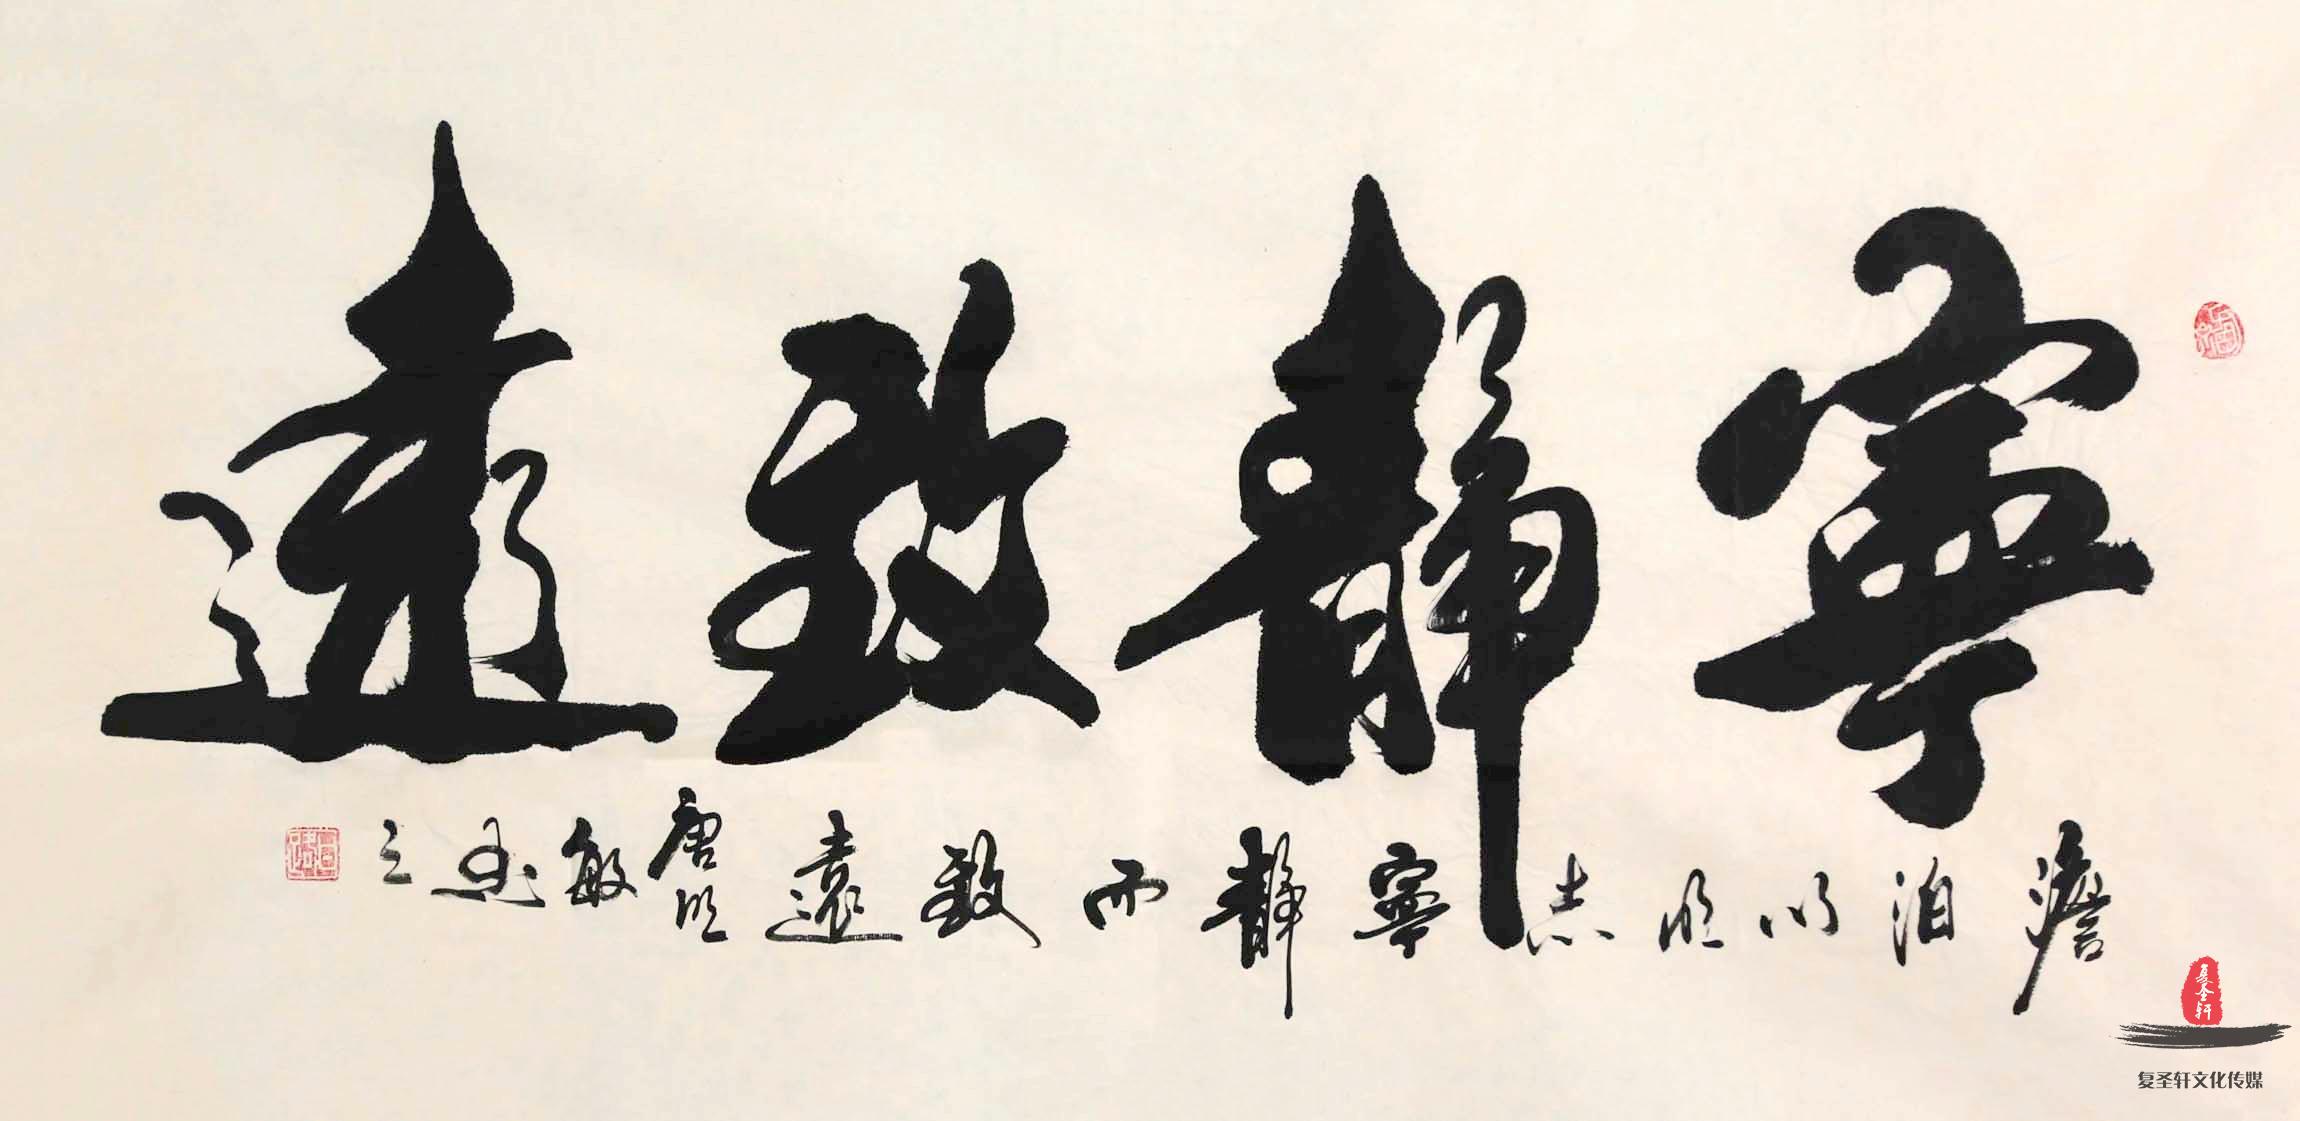 寧靜致遠
澹泊以明志寧靜而致遠
唐明敏
复圣轩
复圣轩文化传媒